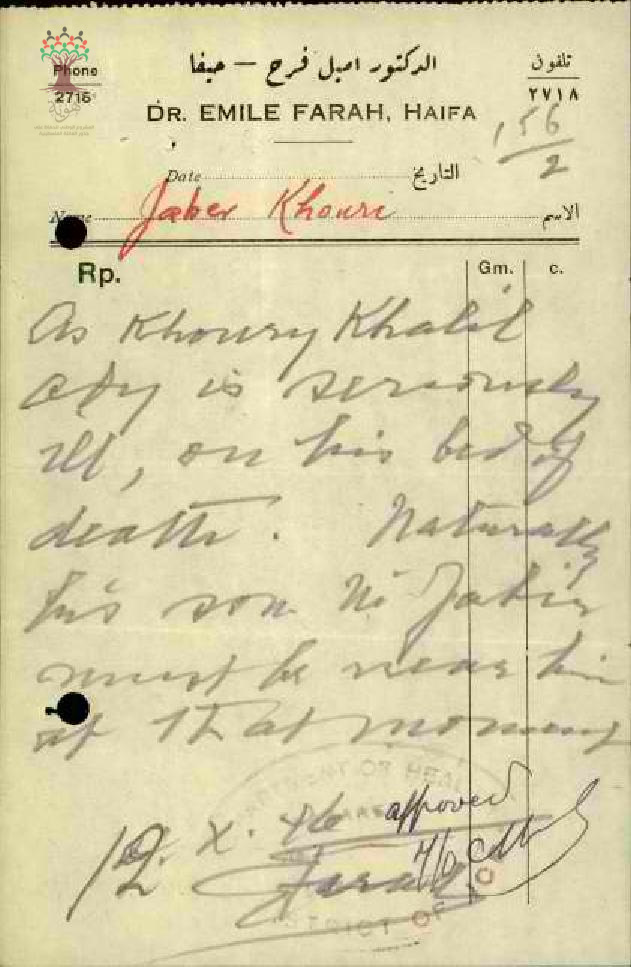 الدكتور اميل فرح - حيفا
تلفون
Phone
٢٧١٨
DR. EMILE FARAH, HAIFA
156/2
Date
التاريخ
Name
Jaber Khouri
الاسم
Rp.
Gm.
c.
As Khoury Khalil
is seriously
ill, on his bed of
death. Naturally
his son Jabir
must be near him
at that moment
approved
12. X. 46
Farah
DEPARTMENT OF HEALTH
DISTRICT OF